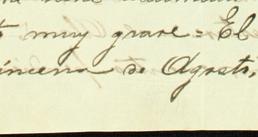 muy grave = El
incena de Agosto,